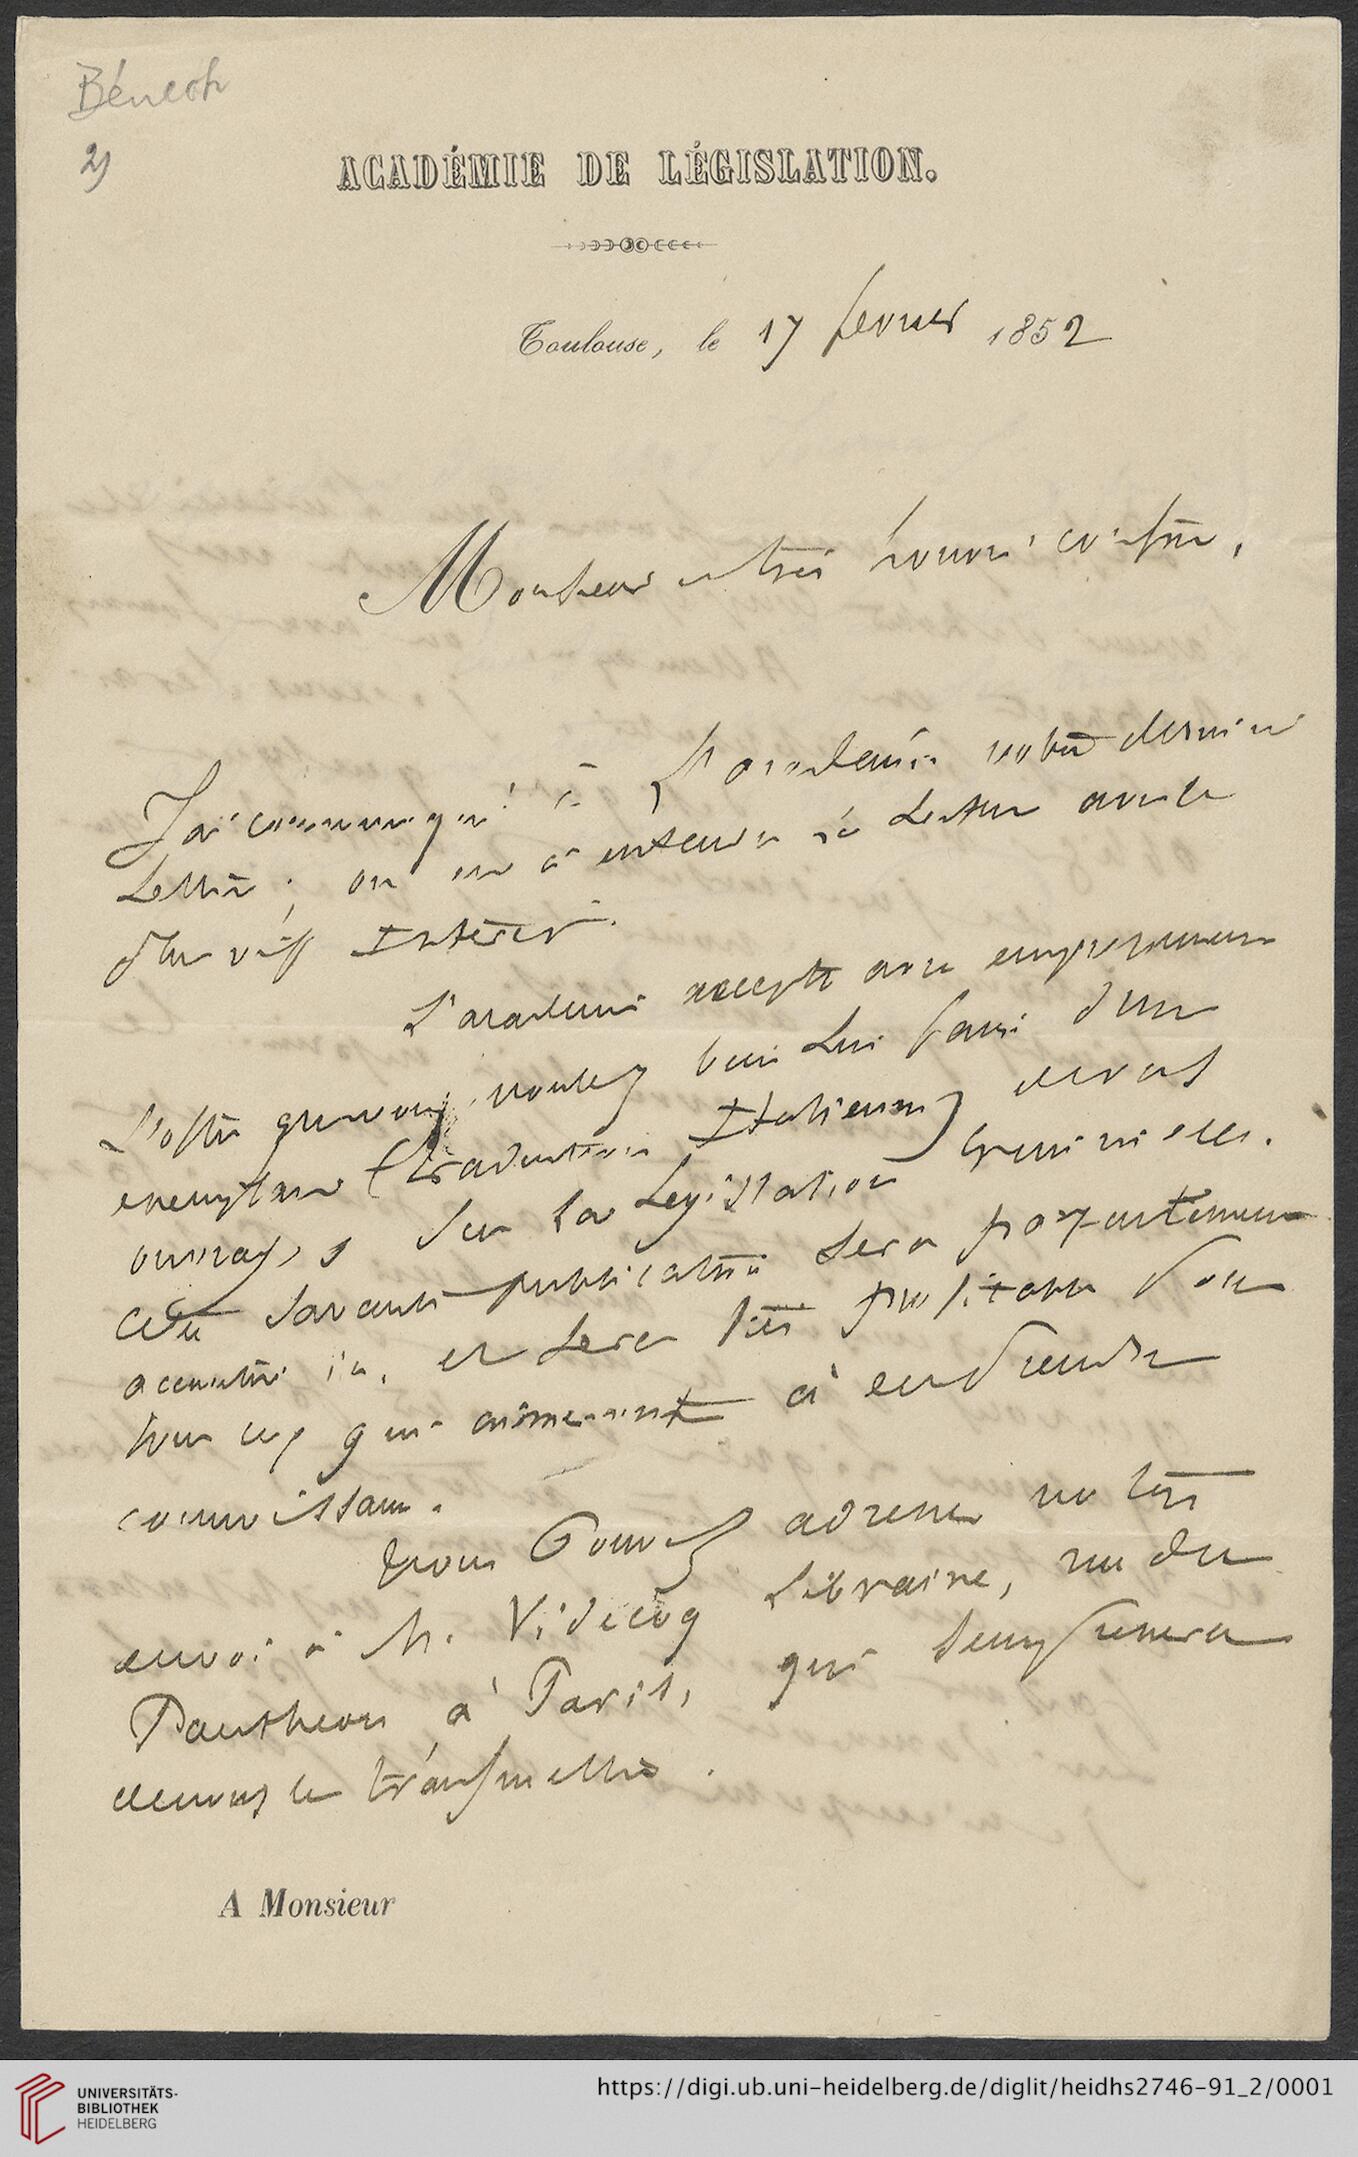 Bénech
2)
ACADÉMIE DE LÉGISLATION.
Toulouse, le 17 fevrier 1852
Monsieur et très honoré confrère,
J'ai communiqué à l'academie votre derniere
Lettre ; on en a entendu la Lecture avec le
plus vif Intéret.
L'academie accepte avec empressement
L'offre que vous voulez bien Lui faire d'un
exemplaire (traduction Italienne) de vos
ouvrages sur la Législation Criminelle.
Cette savante publication sera parfaitement
accueillie ici, et sera très profitable pour
tous ceux qui aimeront à en prendre
connoissance.
Vous Pouvez adresser votre
envoi à M. Videcoq Libraire, rue du
Pantheon à Paris, qui s'empressera
de nous le transmettre.
A Monsieur
UNIVERSITÄTS-
BIBLIOTHEK
HEIDELBERG
https://digi.ub.uni-heidelberg.de/diglit/heidhs2746-91_2/0001